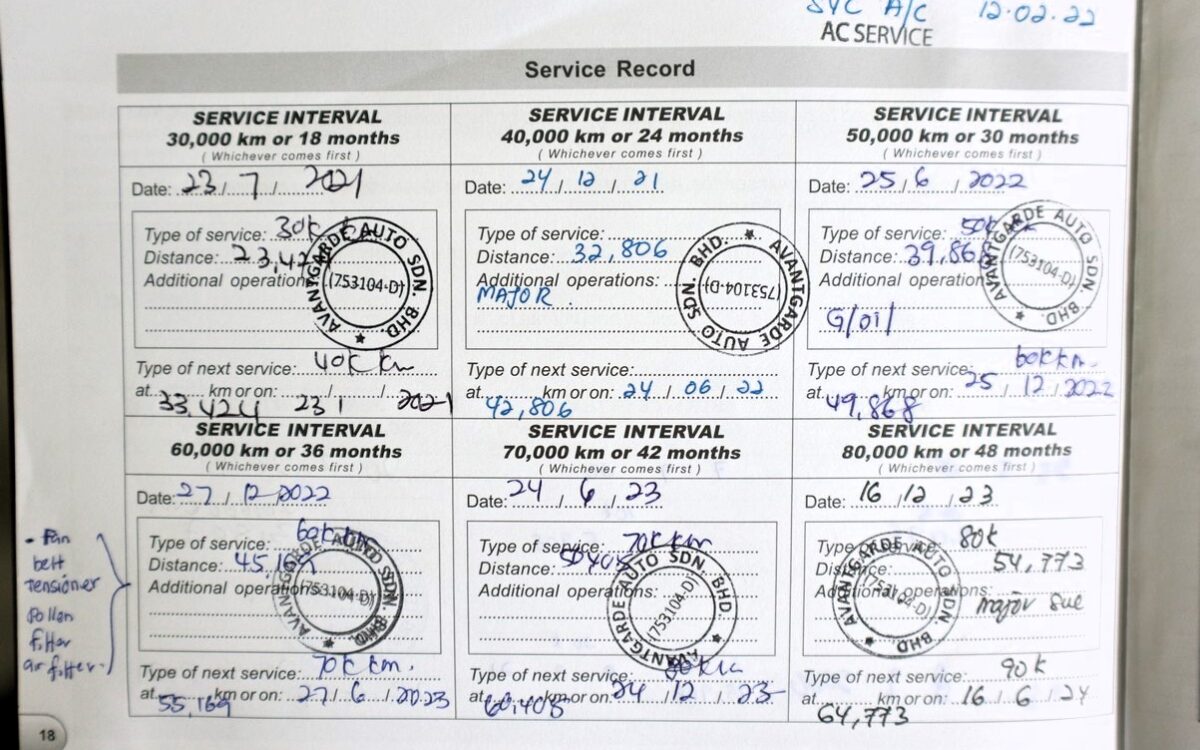 SVC A/C 12.02.22
AC SERVICE
Service Record
SERVICE INTERVAL
30,000 km or 18 months
( Whichever comes first )
Date: 23 / 7 / 2021
Type of service: 30k
Distance: 23,42
Additional operations:
AVANTGARDE AUTO SDN. BHD.
(753104-D)
Type of next service: 40k km
at 33,424 km or on: 23 / 1 / 2021
SERVICE INTERVAL
40,000 km or 24 months
( Whichever comes first )
Date: 24 / 12 / 21
Type of service:
Distance: 32,806
Additional operations:
MAJOR.
AVANTGARDE AUTO SDN. BHD.
(753104-D)
Type of next service:
at 42,806 km or on: 24 / 06 / 22
SERVICE INTERVAL
50,000 km or 30 months
( Whichever comes first )
Date: 25 / 6 / 2022
Type of service: 50k
Distance: 39,868
Additional operations
G/oil
AVANTGARDE AUTO SDN. BHD.
(753104-D)
Type of next service: 60k km.
at 49,868 km or on: 25 / 12 / 2022
SERVICE INTERVAL
60,000 km or 36 months
( Whichever comes first )
Date: 27 / 12 / 2022
Type of service: 60k km
Distance: 45,169
Additional operations
AVANTGARDE AUTO SDN. BHD.
(753104-D)
Type of next service: 70k km.
at 55,169 km or on: 27 / 6 / 2023
- Fan
belt
Tensioner
Pollen
filter
air filter.
SERVICE INTERVAL
70,000 km or 42 months
( Whichever comes first )
Date: 24 / 6 / 23
Type of service: 70k km
Distance: 50408
Additional operations:
AVANTGARDE AUTO SDN. BHD
(753104-D)
Type of next service: 80k
at 60,408 km or on: 24 / 12 / 23
SERVICE INTERVAL
80,000 km or 48 months
( Whichever comes first )
Date: 16 / 12 / 23
Type of service: 80k
Distance: 54,773
Additional operations:
major
AVANTGARDE AUTO SDN. BHD.
(753104-D)
Type of next service: 90k
at 64,773 km or on: 16 / 6 / 24
18